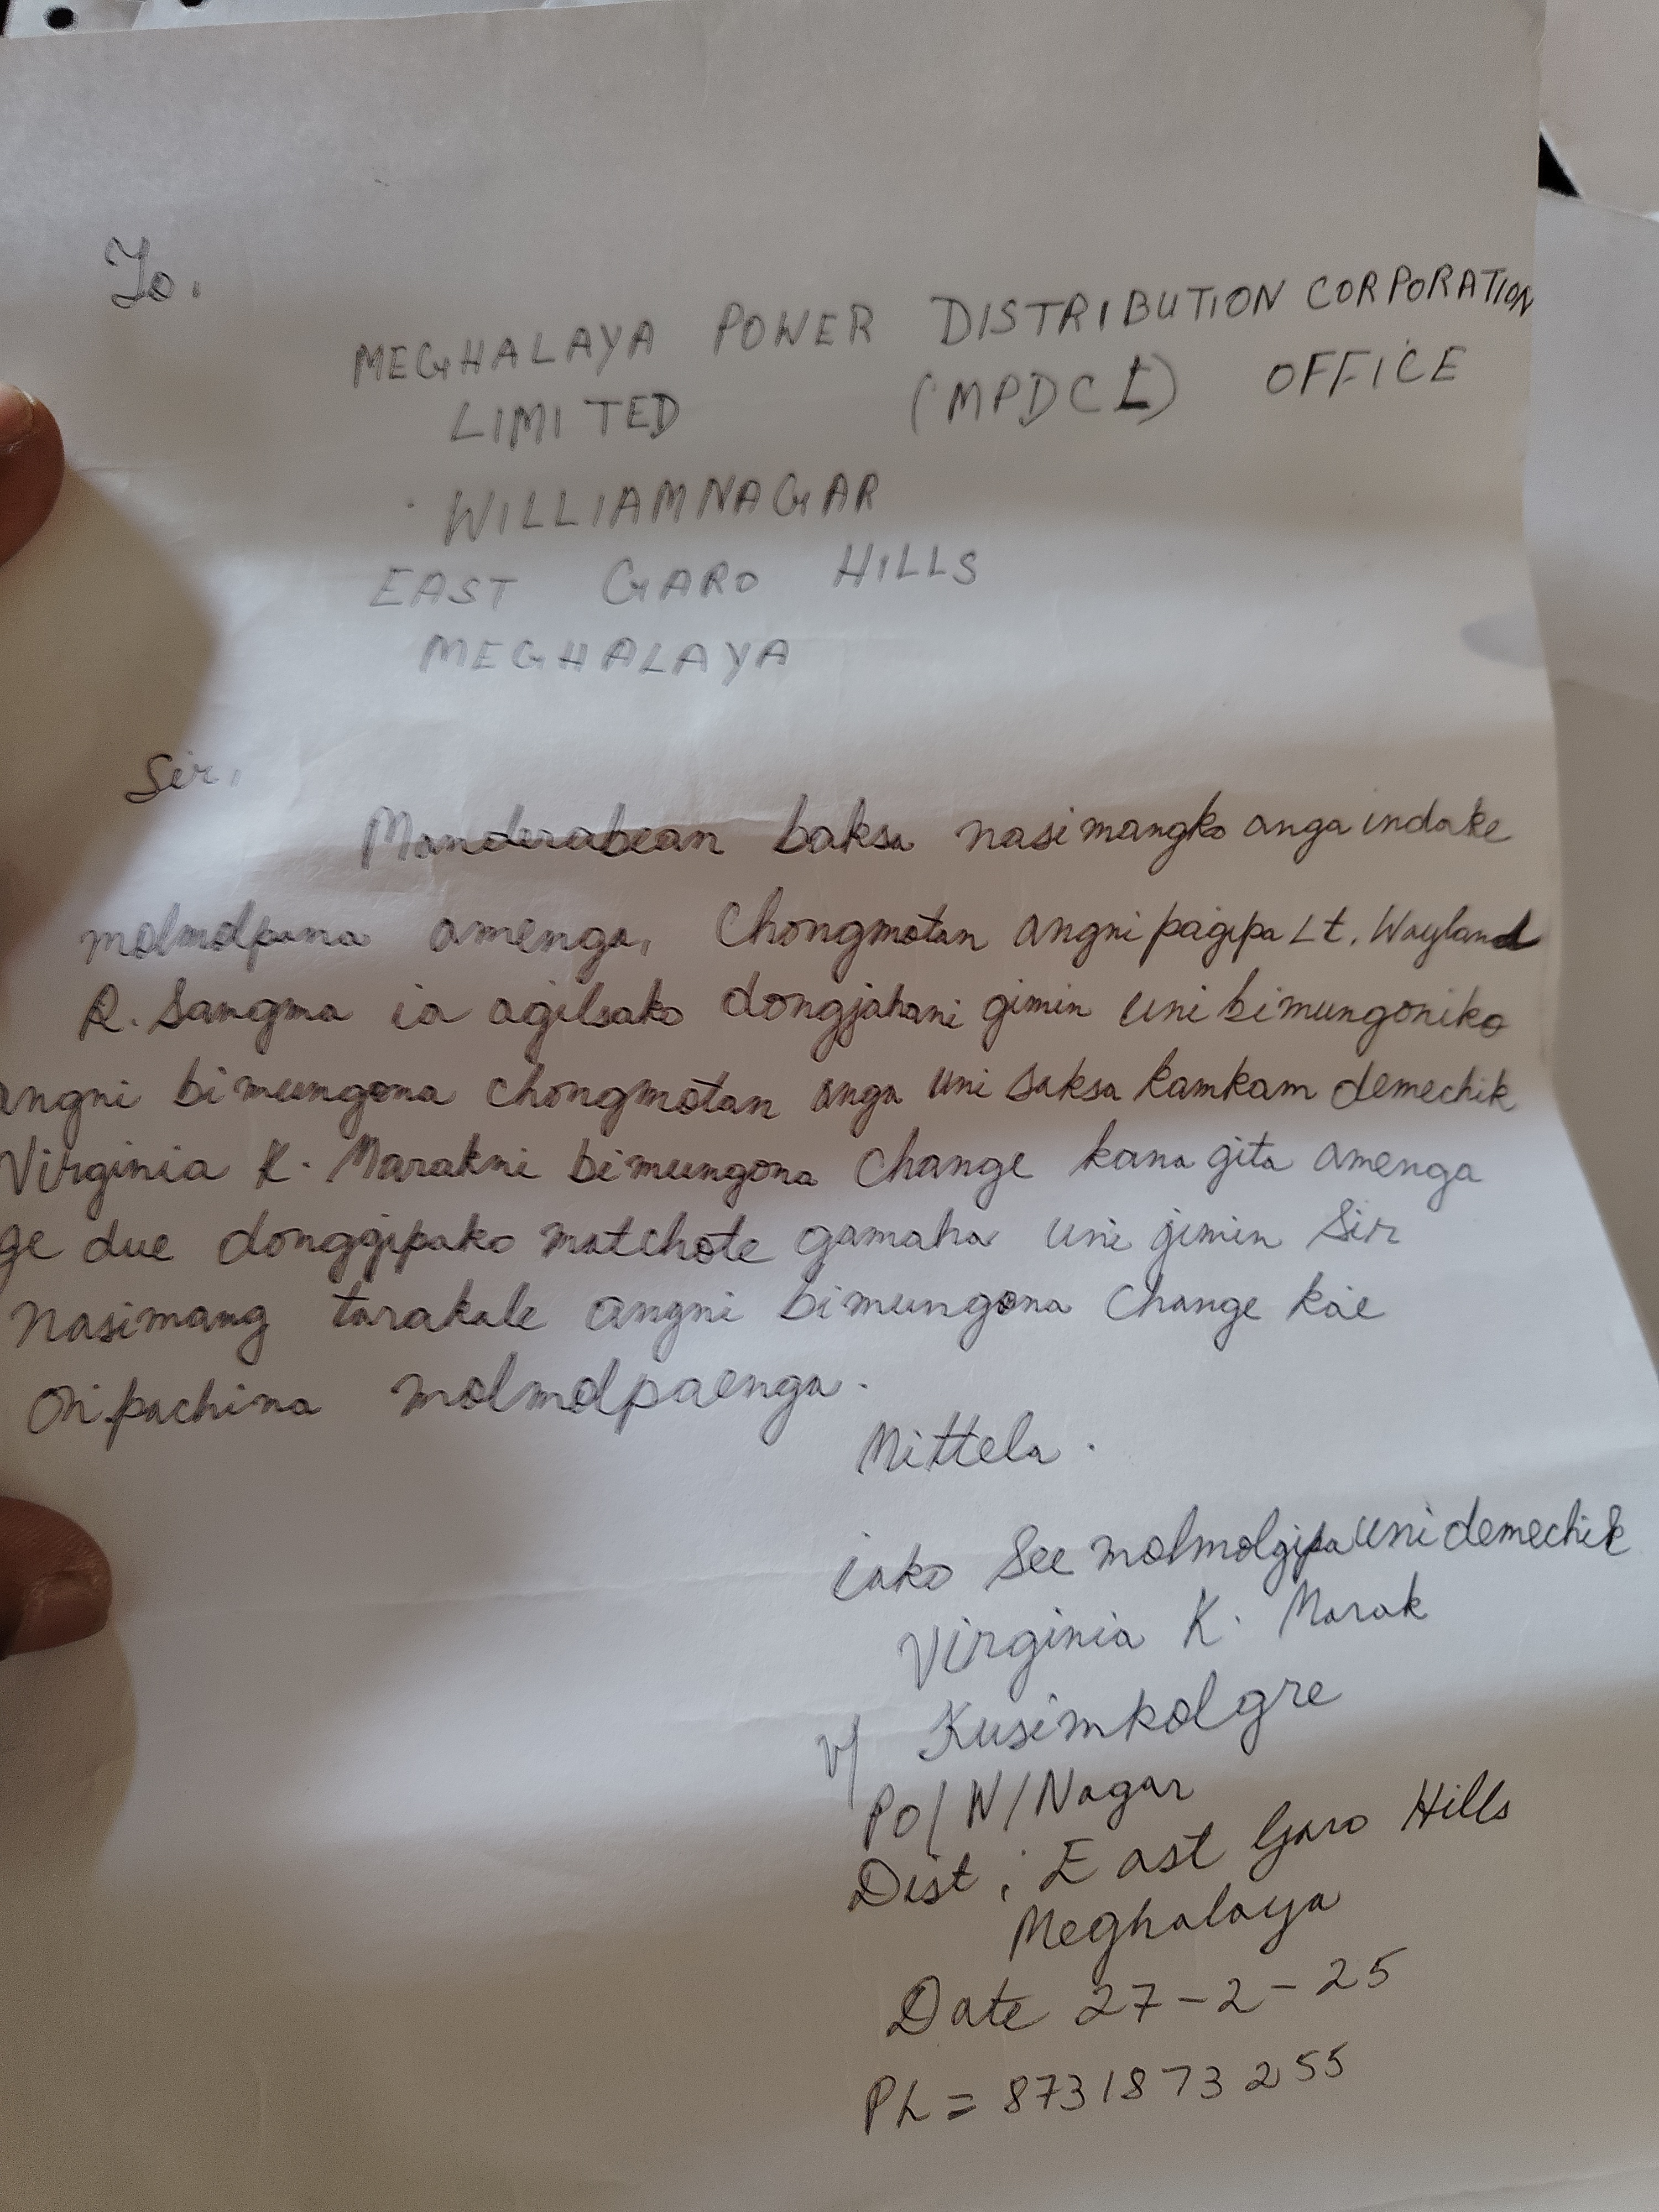 To.
MEGHALAYA POWER DISTRIBUTION CORPORATION
LIMITED (MPDCL) OFFICE
WILLIAMNAGAR
EAST GARO HILLS
MEGHALAYA
Sir,
Manderabean baksa nasimangko anga indake
molmolpana amenga, Chongmotan angni pagipa Lt. Wayland
R. Sangma ia agilsako dongjahani gimin uni bimungoniko
angni bimungona chongmotan anga uni saksa kamkam demechik
Virginia K. Marakni bimungona Change kana gita amenga
ge due donggipako matchote gamaha uni gimin Sir
Nasimang tarakale angni bimungona Change kae
on'pachina molmolpaenga.
Mittela.
iako See molmolgipa uni demechik
Virginia K. Marak
V/ Kusimkolgre
Po/W/Nagar
Dist: East Garo Hills
Meghalaya
Date 27-2-25
Ph = 8731873255